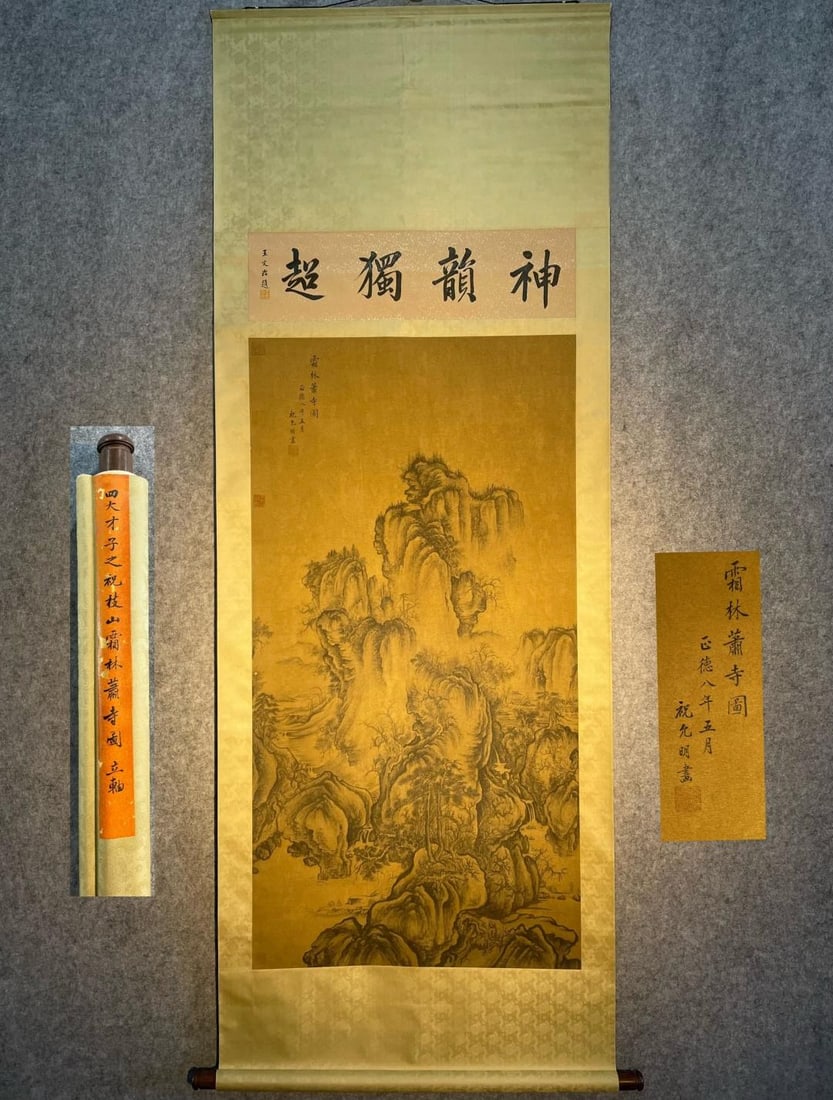 神韻獨超
王文治題
霜林蕭寺圖
正德八年五月
祝允明畫
四大才子之祝枝山霜林蕭寺圖 立軸
霜林蕭寺圖
正德八年五月
祝允明畫